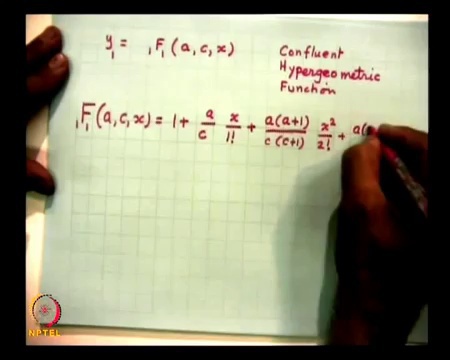 y₁ = ₁F₁ (a, c, x)
Confluent
Hypergeometric
Function
₁F₁(a, c, x) = 1 + a/c x/1! + a(a+1)/c(c+1) x²/2! + a(
NPTEL